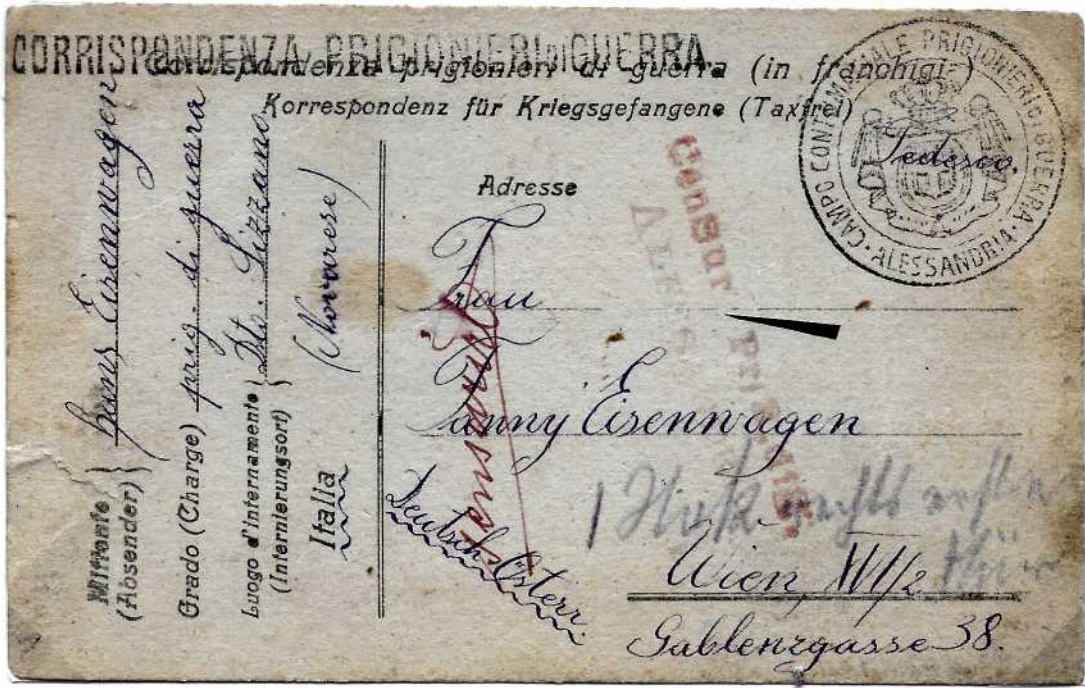 CORRISPONDENZA PRIGIONIERI DI GUERRA
Corrispondenza prigionieri di guerra (in franchigia)
Korrespondenz für Kriegsgefangene (Taxfrei)
CAMPO CONTUMACIALE PRIGIONIERI GUERRA · ALESSANDRIA ·
Tedesco.
Mittente (Absender) Hans Eisenwagen
Grado (Charge) prig. di guerra
Luogo d'internamento (Internierungsort) Lizzano
(Novarese)
Italia
Adresse
Frau
Fanny Eisenwagen
Deutsch-Österr.
Wien, XVI/2
Gablenzgasse 38.
1 Stock rechts
Tür
Censur